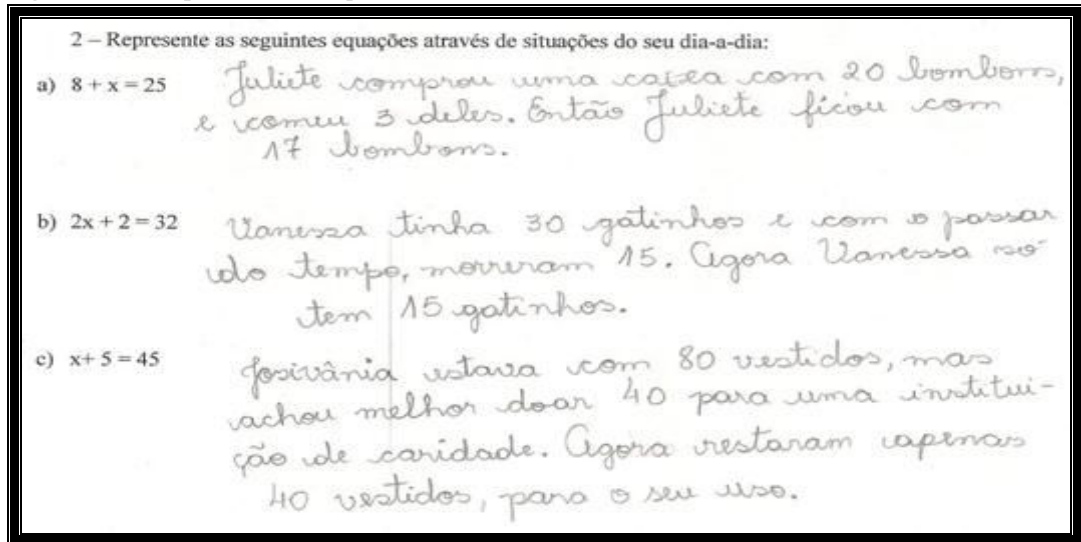 2 – Represente as seguintes equações através de situações do seu dia-a-dia:
a) 8 + x = 25 Juliete comprou uma caixa com 20 bombons,
e comeu 3 deles. Então Juliete ficou com
17 bombons.
b) 2x + 2 = 32 Vanessa tinha 30 gatinhos e com o passar
do tempo, morreram 15. Agora Vanessa só
tem 15 gatinhos.
c) x+ 5 = 45 Josivânia estava com 80 vestidos, mas
achou melhor doar 40 para uma institui-
ção de caridade. Agora restaram apenas
40 vestidos, para o seu uso.